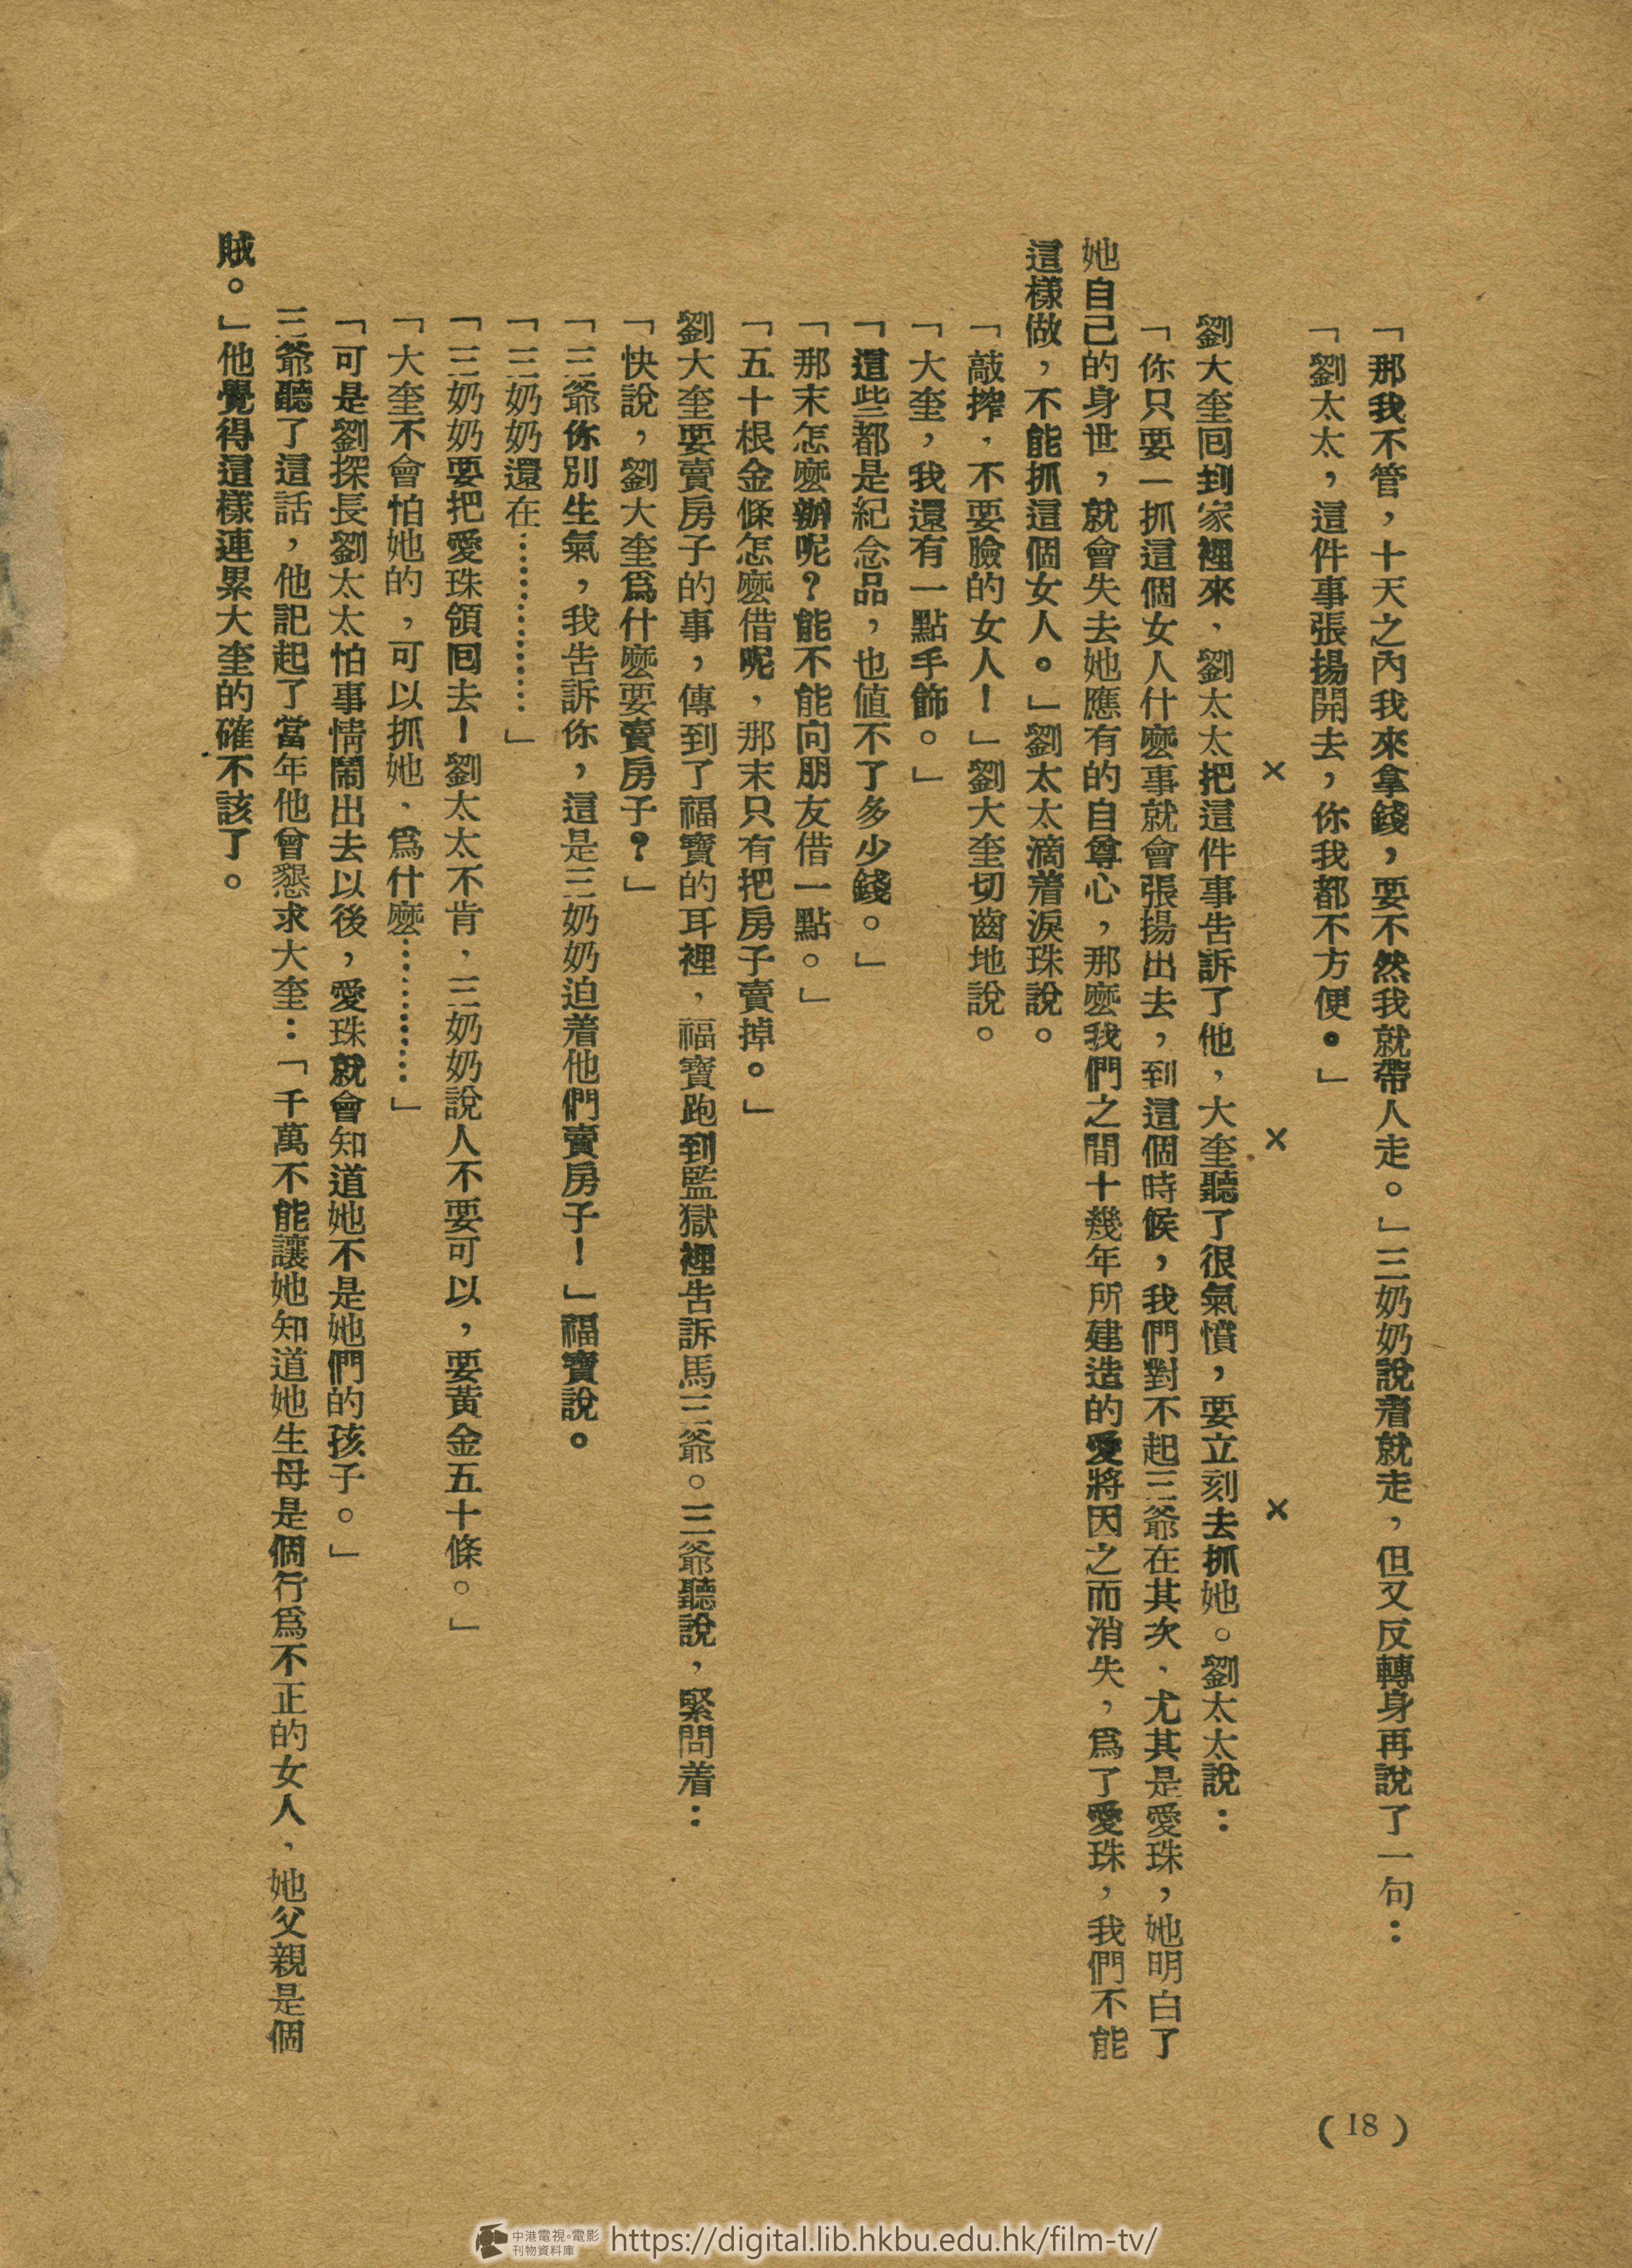 「那我不管，十天之內我來拿錢，要不然我就帶人走。」三奶奶說着就走，但又反轉身再說了一句：
「劉太太，這件事張揚開去，你我都不方便。」
×　×　×
劉大奎回到家裡來，劉太太把這件事告訴了他，大奎聽了很氣憤，要立刻去抓她。劉太太說：
「你只要一抓這個女人什麼事就會張揚出去，到這個時候，我們對不起三爺在其次，尤其是愛珠，她明白了
她自己的身世，就會失去她應有的自尊心，那麼我們之間十幾年所建造的愛將因之而消失，爲了愛珠，我們不能
這樣做，不能抓這個女人。」劉太太滴着淚珠說。
「敲搾，不要臉的女人！」劉大奎切齒地說。
「大奎，我還有一點手飾。」
「這些都是紀念品，也値不了多少錢。」
「那末怎麼辦呢？能不能向朋友借一點。」
「五十根金條怎麼借呢，那末只有把房子賣掉。」
劉大奎要賣房子的事，傳到了福寶的耳裡，福寶跑到監獄裡告訴馬三爺。三爺聽說，緊問着：
「快說，劉大奎爲什麼要賣房子？」
「三爺你別生氣，我告訴你，這是三奶奶迫着他們賣房子！」福寶說。
「三奶奶還在…………」
「三奶奶要把愛珠領回去！劉太太不肯，三奶奶說人不要可以，要黃金五十條。」
「大奎不會怕她的，可以抓她，爲什麼…………」
「可是劉探長劉太太怕事情鬧出去以後，愛珠就會知道她不是她們的孩子。」
三爺聽了這話，他記起了當年他曾懇求大奎：「千萬不能讓她知道她生母是個行爲不正的女人，她父親是個
賊。」他覺得這樣連累大奎的確不該了。
(18)
中港電視。電影
刊物資料庫
https://digital.lib.hkbu.edu.hk/film-tv/